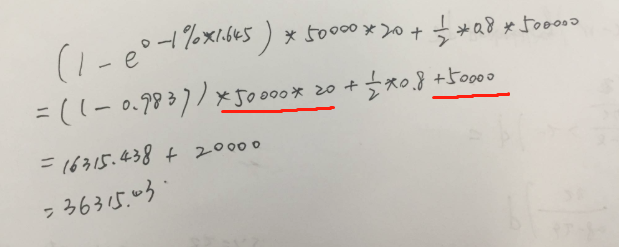 (1 - e^0-1%*1.645) * 50000 * 20 + 1/2 * 0.8 * 500000
= (1 - 0.9837) * 50000 * 20 + 1/2 * 0.8 + 50000
= 16315.438 + 20000
= 36315.43